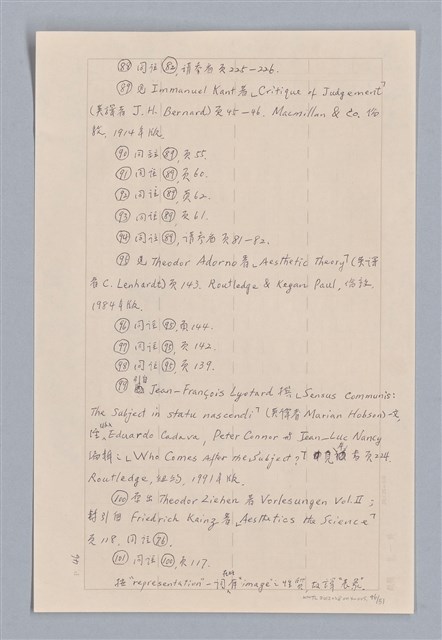 ㊇⑧ 同註 ㊇②, 請參看頁225-226.
⑧⑨ 見 Immanuel Kant 著「Critique of Judgement」
(英譯者 J. H. Bernard) 頁45-46. Macmillan & Co. 倫
敦, 1914年版.
⑨⓪ 同註 ⑧⑨, 頁55.
⑨① 同註 ⑧⑨, 頁60.
⑨② 同註 ⑧⑨, 頁62.
⑨③ 同註 ⑧⑨, 頁61.
⑨④ 同註 ⑧⑨, 請參看頁81-82.
⑨⑤ 見 Theodor Adorno 著「Aesthetic Theory」(英譯
者 C. Lenhardt) 頁143. Routledge & Kegan Paul, 倫敦,
1984年版.
⑨⑥ 同註 ⑨⑤, 頁144.
⑨⑦ 同註 ⑨⑤, 頁142.
⑨⑧ 同註 ⑨⑤, 頁139.
⑨⑨ 引自 Jean-François Lyotard 撰「Sensus Communis:
The Subject in statu nascendi」(英譯者 Marian Hobson) 一文,
Eduardo Cadava, Peter Connor 與 Jean-Luc Nancy
編輯之「Who Comes After the Subject?」頁224.
Routledge, 紐約, 1991年版.
(100) 登出 Theodor Ziehen 著 Vorlesungen Vol. II ;
轉引自 Friedrich Kainz 著「Aesthetics the Science」
頁118. 同註 (76).
(101) 同註 (100), 頁117.
按 "representation" 一詞 有 "image" 之性質, 故譯 "表象".
P. 96
96/51